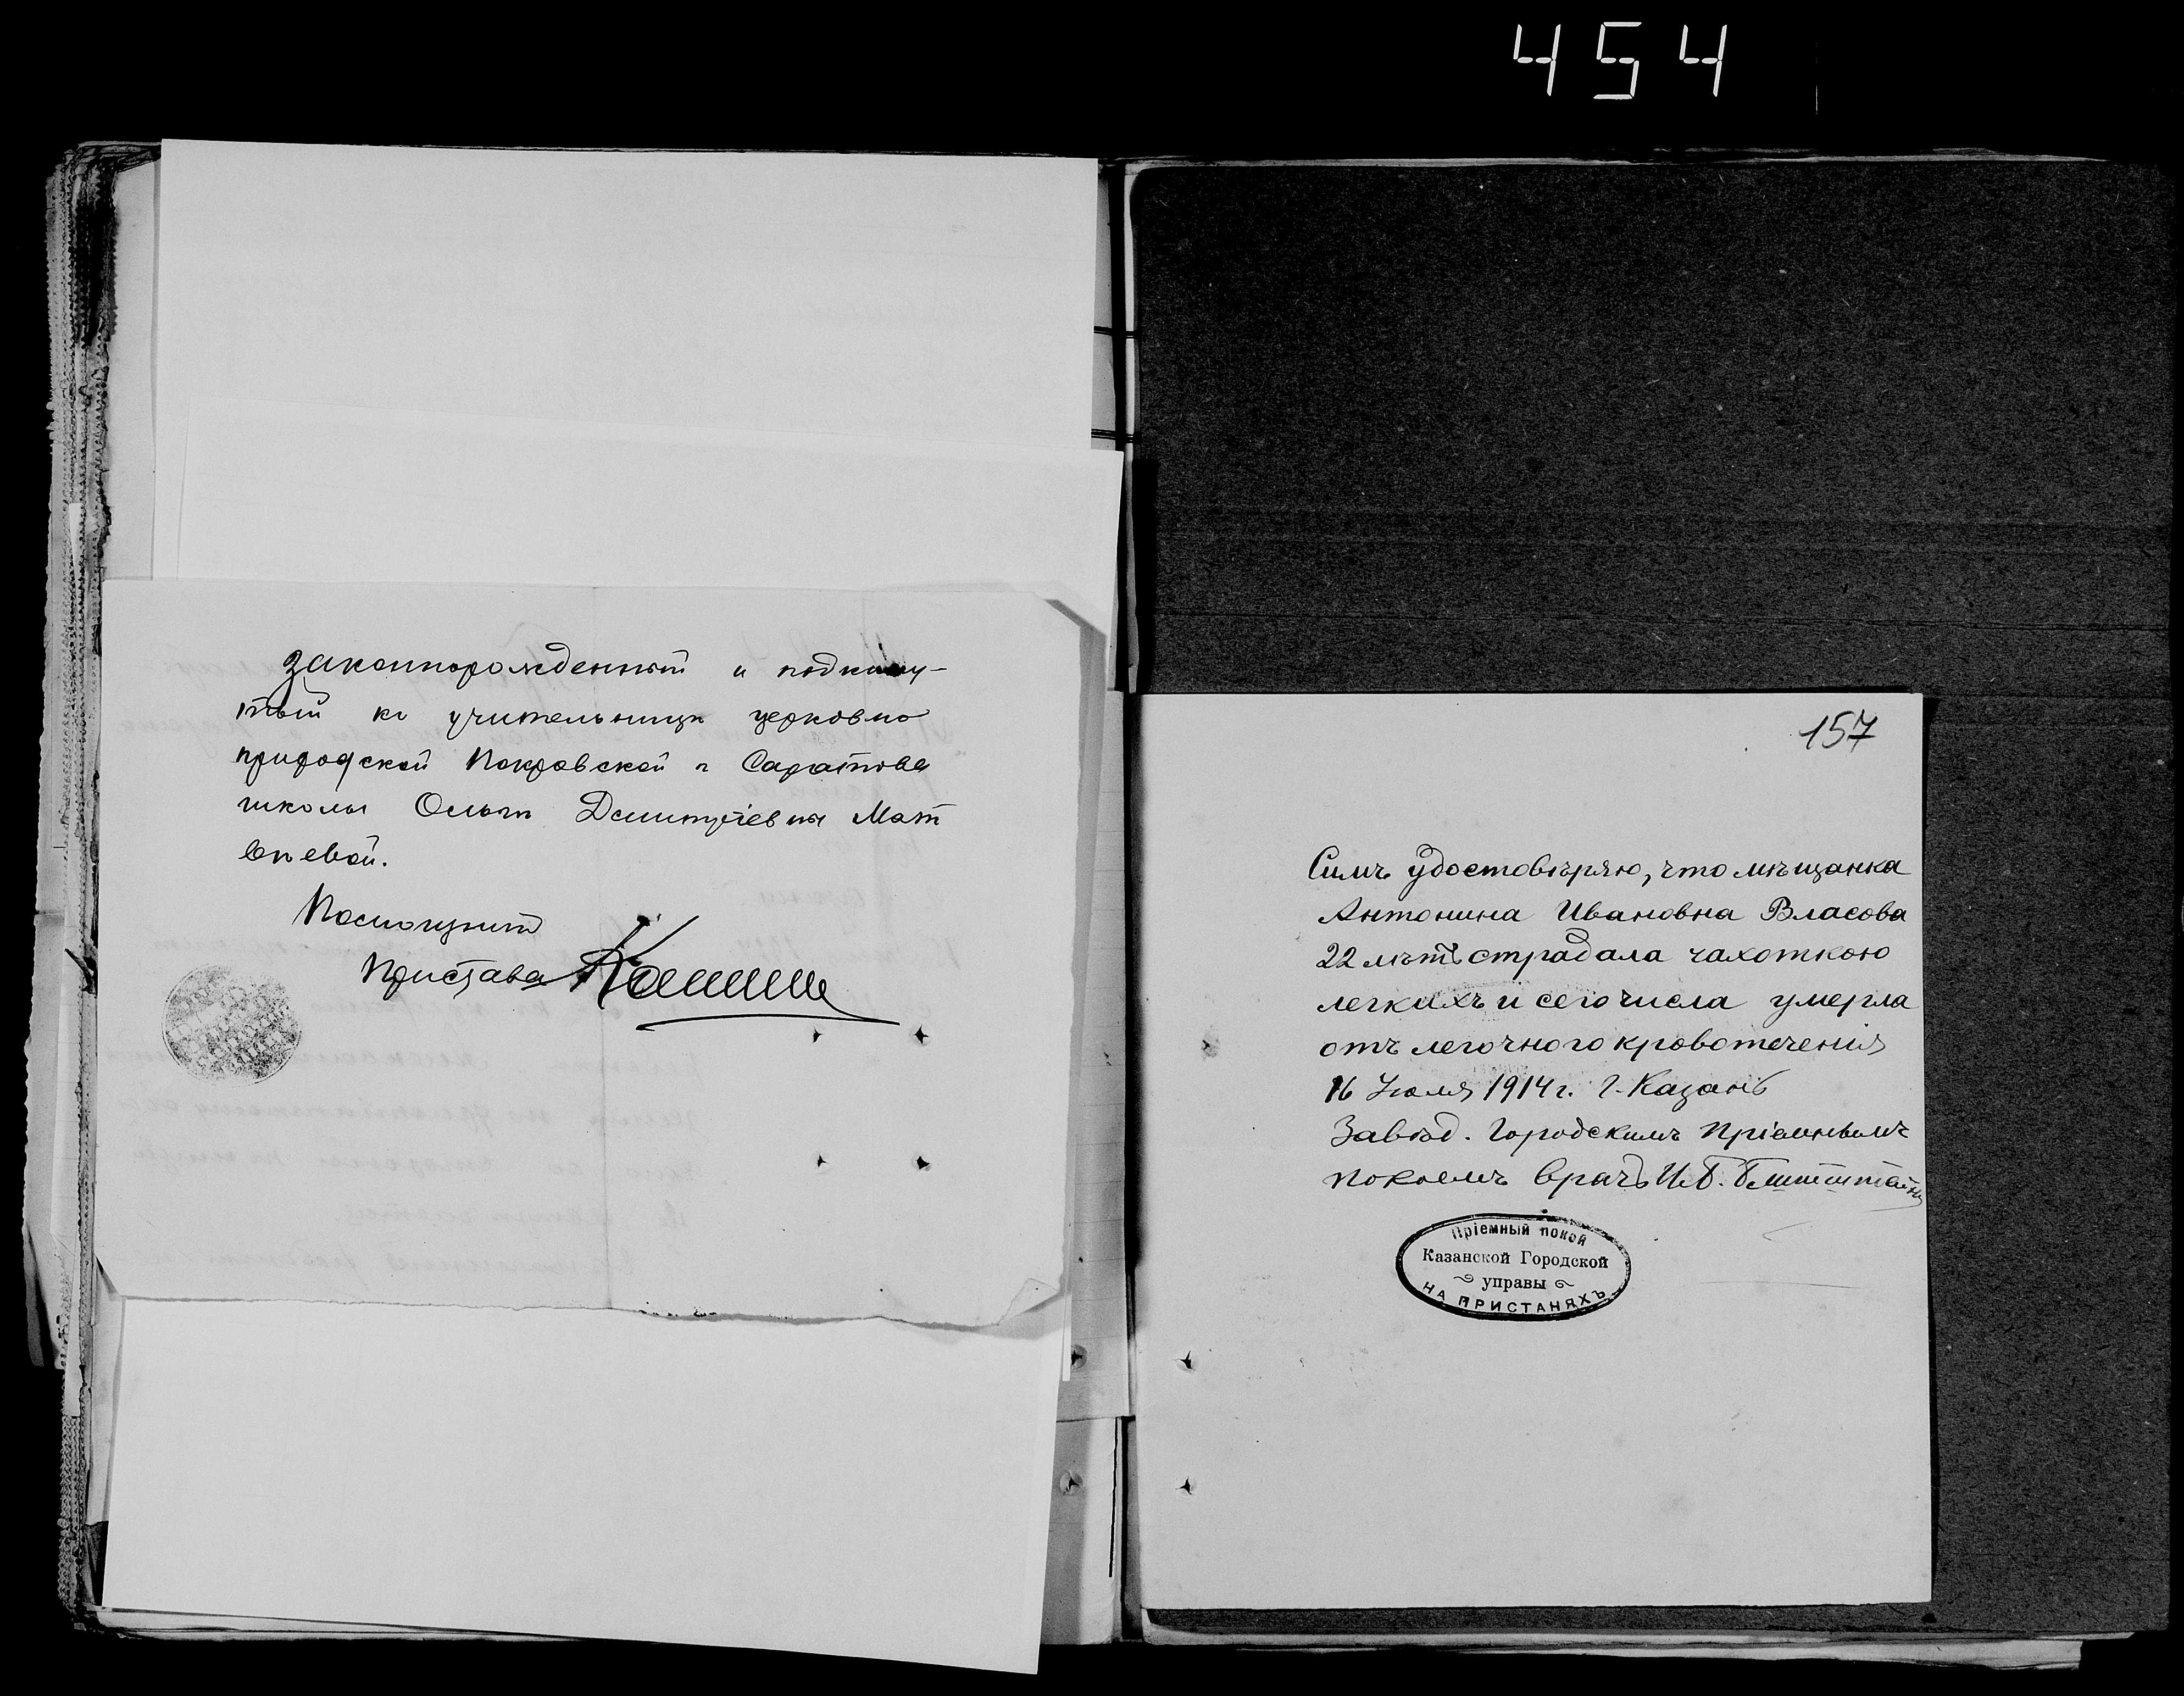 454
законнорожденный и подкину-
тый къ учительницѣ церковно
приходской Покровской г Саратова
школы Ольгѣ Дмитріевнѣ Мат
вѣевой.
Помощникъ
Пристава
157
Симъ удостовѣряю, что мѣщанка
Антонина Ивановна Власова
22 лѣтъ страдала чахоткою
легкихъ и сего числа умерла
отъ легочного кровотеченія
16 Іюля 1914 г. г. Казань
Завѣд. Городскимъ Пріемнымъ
покоемъ врачъ И.Б.
Пріемный покой
Казанской Городской
управы
НА ПРИСТАНЯХЪ